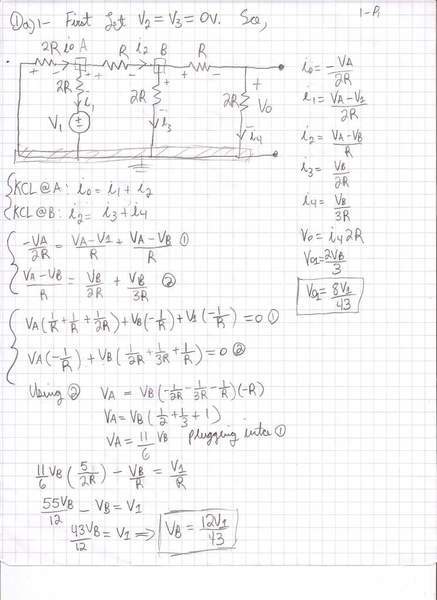 1) a) 1- First Let V₂ = V₃ = 0V. So,
1-P₁
2R i₀ A R i₂ B R
+ - + - + -
2R i₁ 2R i₃ 2R V₀ i₄
V₁
i₀ = -VA/2R
i₁ = VA-V₁/2R
i₂ = VA-VB/R
i₃ = VB/2R
i₄ = VB/3R
V₀ = i₄2R
V₀₁ = 2VB/3
V₀₁ = 8V₁/43
KCL @ A: i₀ = i₁ + i₂
KCL @ B: i₂ = i₃ + i₄
-VA/2R = VA-V₁/R + VA-VB/R ①
VA-VB/R = VB/2R + VB/3R ②
VA(1/R + 1/R + 1/2R) + VB(-1/R) + V₁(-1/R) = 0 ①
VA(-1/R) + VB(1/2R + 1/3R + 1/R) = 0 ②
Using ② VA = VB(-1/2R - 1/3R - 1/R)(-R)
VA = VB(1/2 + 1/3 + 1)
VA = 11/6 VB plugging into ①
11/6 VB(5/2R) - VB/R = V₁/R
55VB/12 - VB = V₁
43VB/12 = V₁ => VB = 12V₁/43